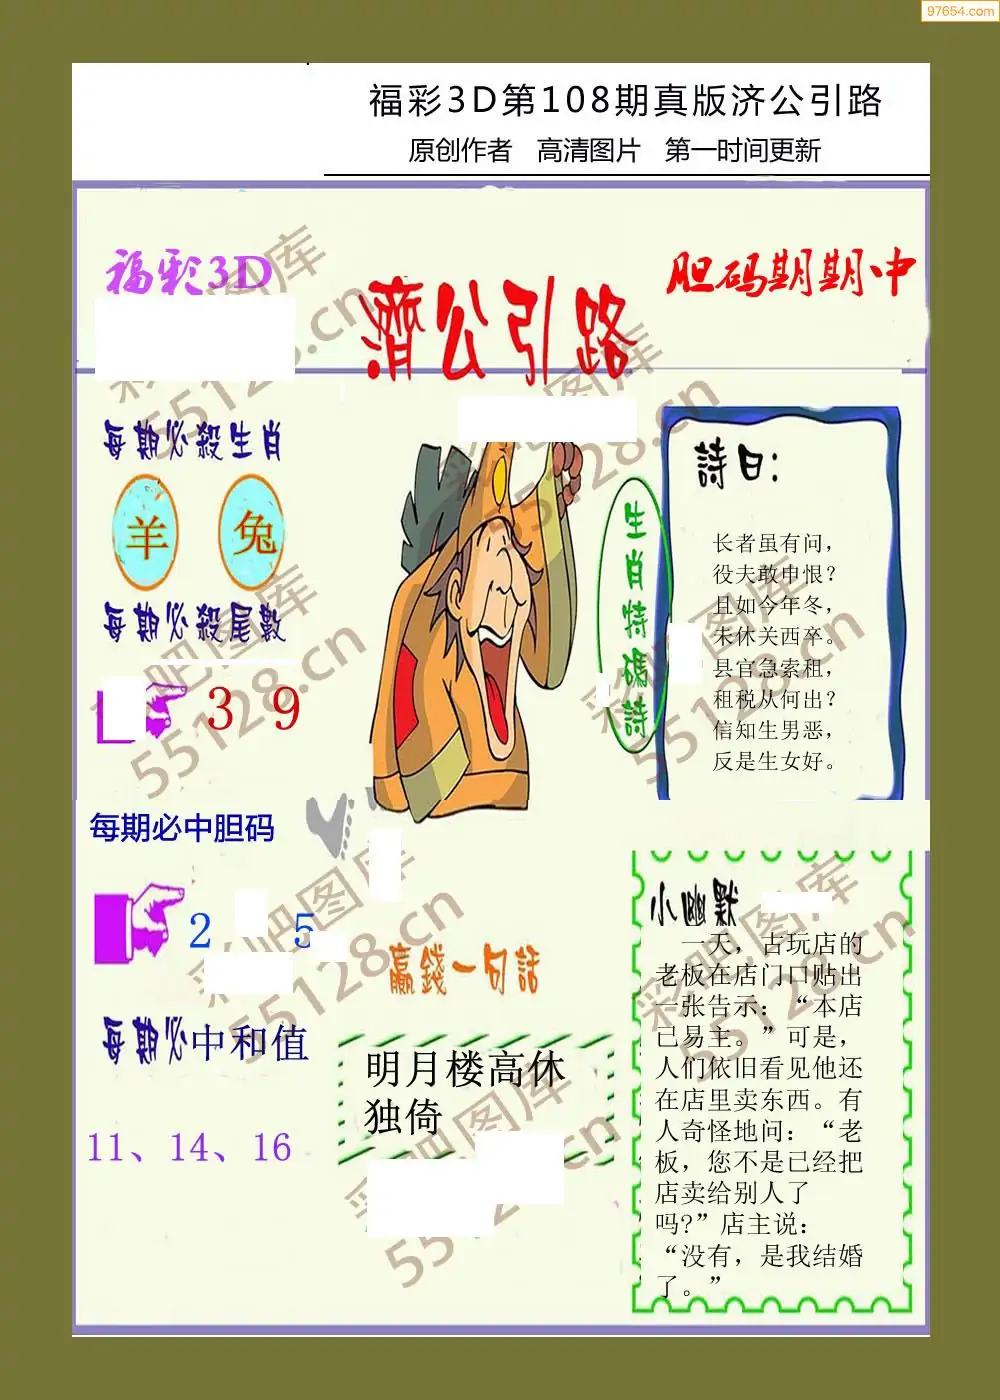 97654.com
福彩3D第108期真版济公引路
原创作者 高清图片 第一时间更新
福彩3D
濟公引路
胆码期期中
每期必殺生肖
羊 兔
每期必殺尾數
3 9
每期必中胆码
2 5
每期必中和值
11、14、16
生肖特碼詩
詩曰：
长者虽有问，
役夫敢申恨？
且如今年冬，
未休关西卒。
县官急索租，
租税从何出？
信知生男恶，
反是生女好。
贏錢一句話
明月楼高休
独倚
小幽默
一天，古玩店的
老板在店门口贴出
一张告示：“本店
已易主。”可是，
人们依旧看见他还
在店里卖东西。有
人奇怪地问：“老
板，您不是已经把
店卖给别人了
吗?”店主说：
“没有，是我结婚
了。”
彩吧图库
55128.cn
彩吧图库
55128.cn
彩吧图库
55128.cn
彩吧图库
55128.cn
彩吧图库
55128.cn
彩吧图库
55128.cn
彩吧图库
55128.cn